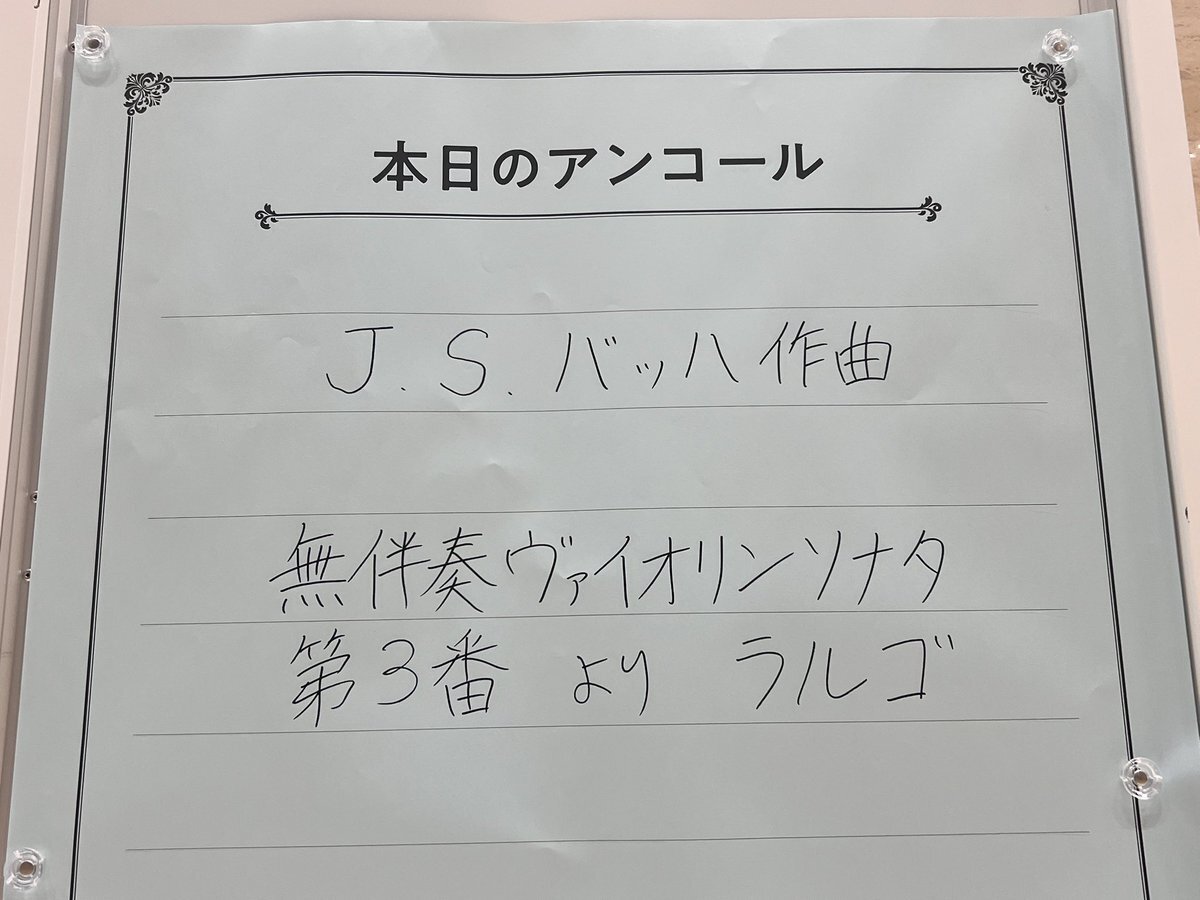 本日のアンコール
J.S.バッハ作曲
無伴奏ヴァイオリンソナタ
第3番 より ラルゴ